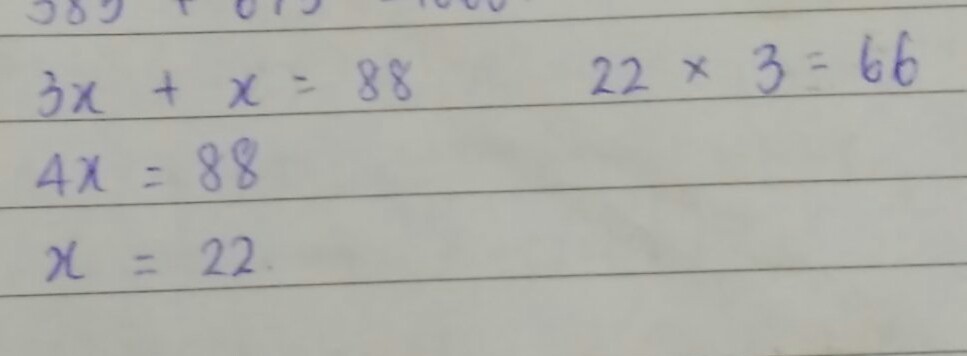 3x + x = 88 22 × 3 = 66
4x = 88
x = 22.